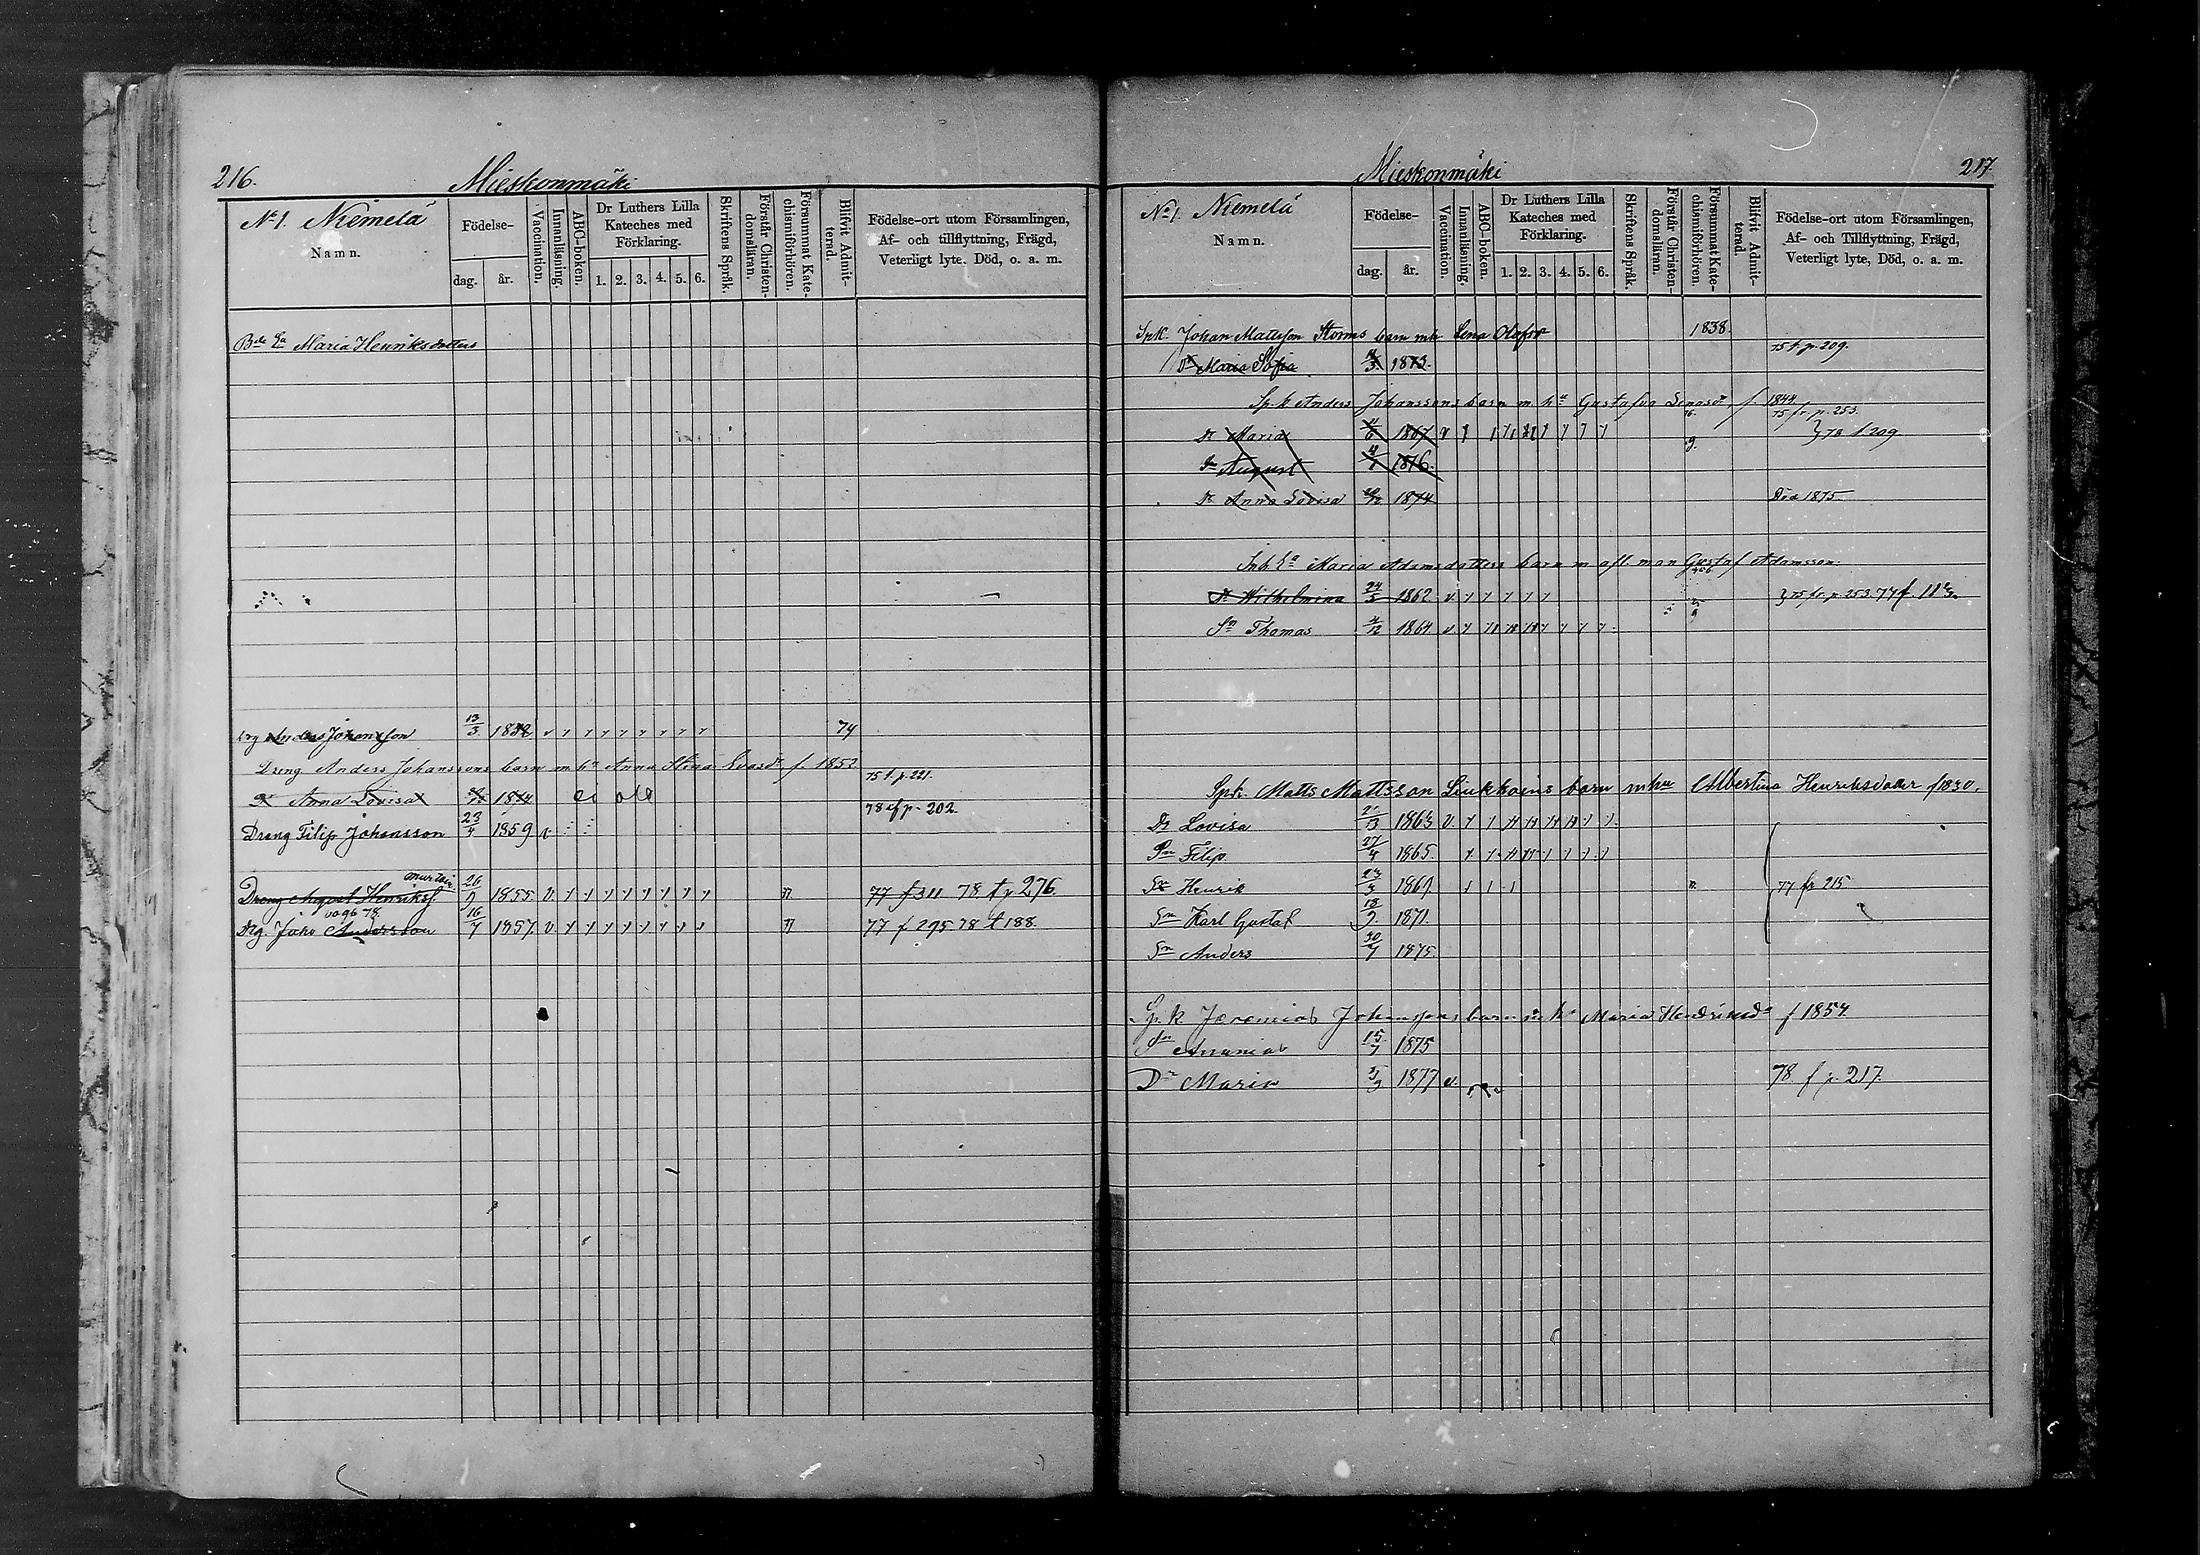 216.
Mieskonmäki
No 1. Niemelä
Namn.
Födelse-
dag.
år.
Vaccination.
Innanläsning.
ABC-boken.
Dr Luthers Lilla
Kateches med
Förklaring.
1. 2. 3. 4. 5. 6.
Skriftens Språk.
Förstår Christen-
domsläran.
Försummat Kate-
chismiförhören.
Blifvit Admit-
terad.
Födelse-ort utom Församlingen,
Af- och tillflyttning, Frägd,
Veterligt lyte. Död, o. a. m.
Maria Henriksdotters
Anders Johansson 13/3 74
Dreng Anders Johanssons barn m hu Anna Stina f 1852
75 t. p. 221.
Dr Anna Lovisa 1874
78 f p. 202.
Dreng Filip Johansson 23/4 1859 v
Dreng August Henrikss. 26/9 1855 v 77 f 311 78 t p 276
Drg. Joho Andersson 16/7 1857 v 77 f 295 78 t 188.
Mieskonmäki
217.
No 1. Niemelä
Namn.
Födelse-
dag.
år.
Vaccination.
Innanläsning.
ABC-boken.
Dr Luthers Lilla
Kateches med
Förklaring.
1. 2. 3. 4. 5. 6.
Skriftens Språk.
Förstår Christen-
domsläran.
Försummat Kate-
chismiförhören.
Blifvit Admit-
terad.
Födelse-ort utom Församlingen,
Af- och Tillflyttning, Frägd,
Veterligt lyte, Död, o. a. m.
Spk. Johan Mattsson Storms barn mh Lena Olofsdr 1838.
75 t. p. 209.
Dr Maria Sofia 1873.
Spk Anders Johanssons barn m hu Gustafva f. 1844
75 fr. p. 253.
Dr Maria 1867 v 78 t 209
Sn August 1876.
Dr Anna Lovisa 1874 Död 1875
Inh. Maria Adamsdotters barn m afl. man Gustaf Adamsson.
Dr Wilhelmina 24/5 1862 v 75 fr. p. 253. 77 f.
Sn Thomas 4/12 1864 v
Spk. Matts Mattsson Liukkoins barn mhu Albertina Henriksdotter f 1830.
Dr Lovisa 1863 v.
Sn Filip 21/4 1865.
Sn Henrik 23/3 1869 77 fr 215
Sn Karl Gustaf 18/9 1871.
Sn Anders 30/7 1875
Spk Jeremias Johanssons barn m hu Maria f 1854
Sn Ananias 15/7 1875
Dr Maria 1877 v. 78 f p. 217.